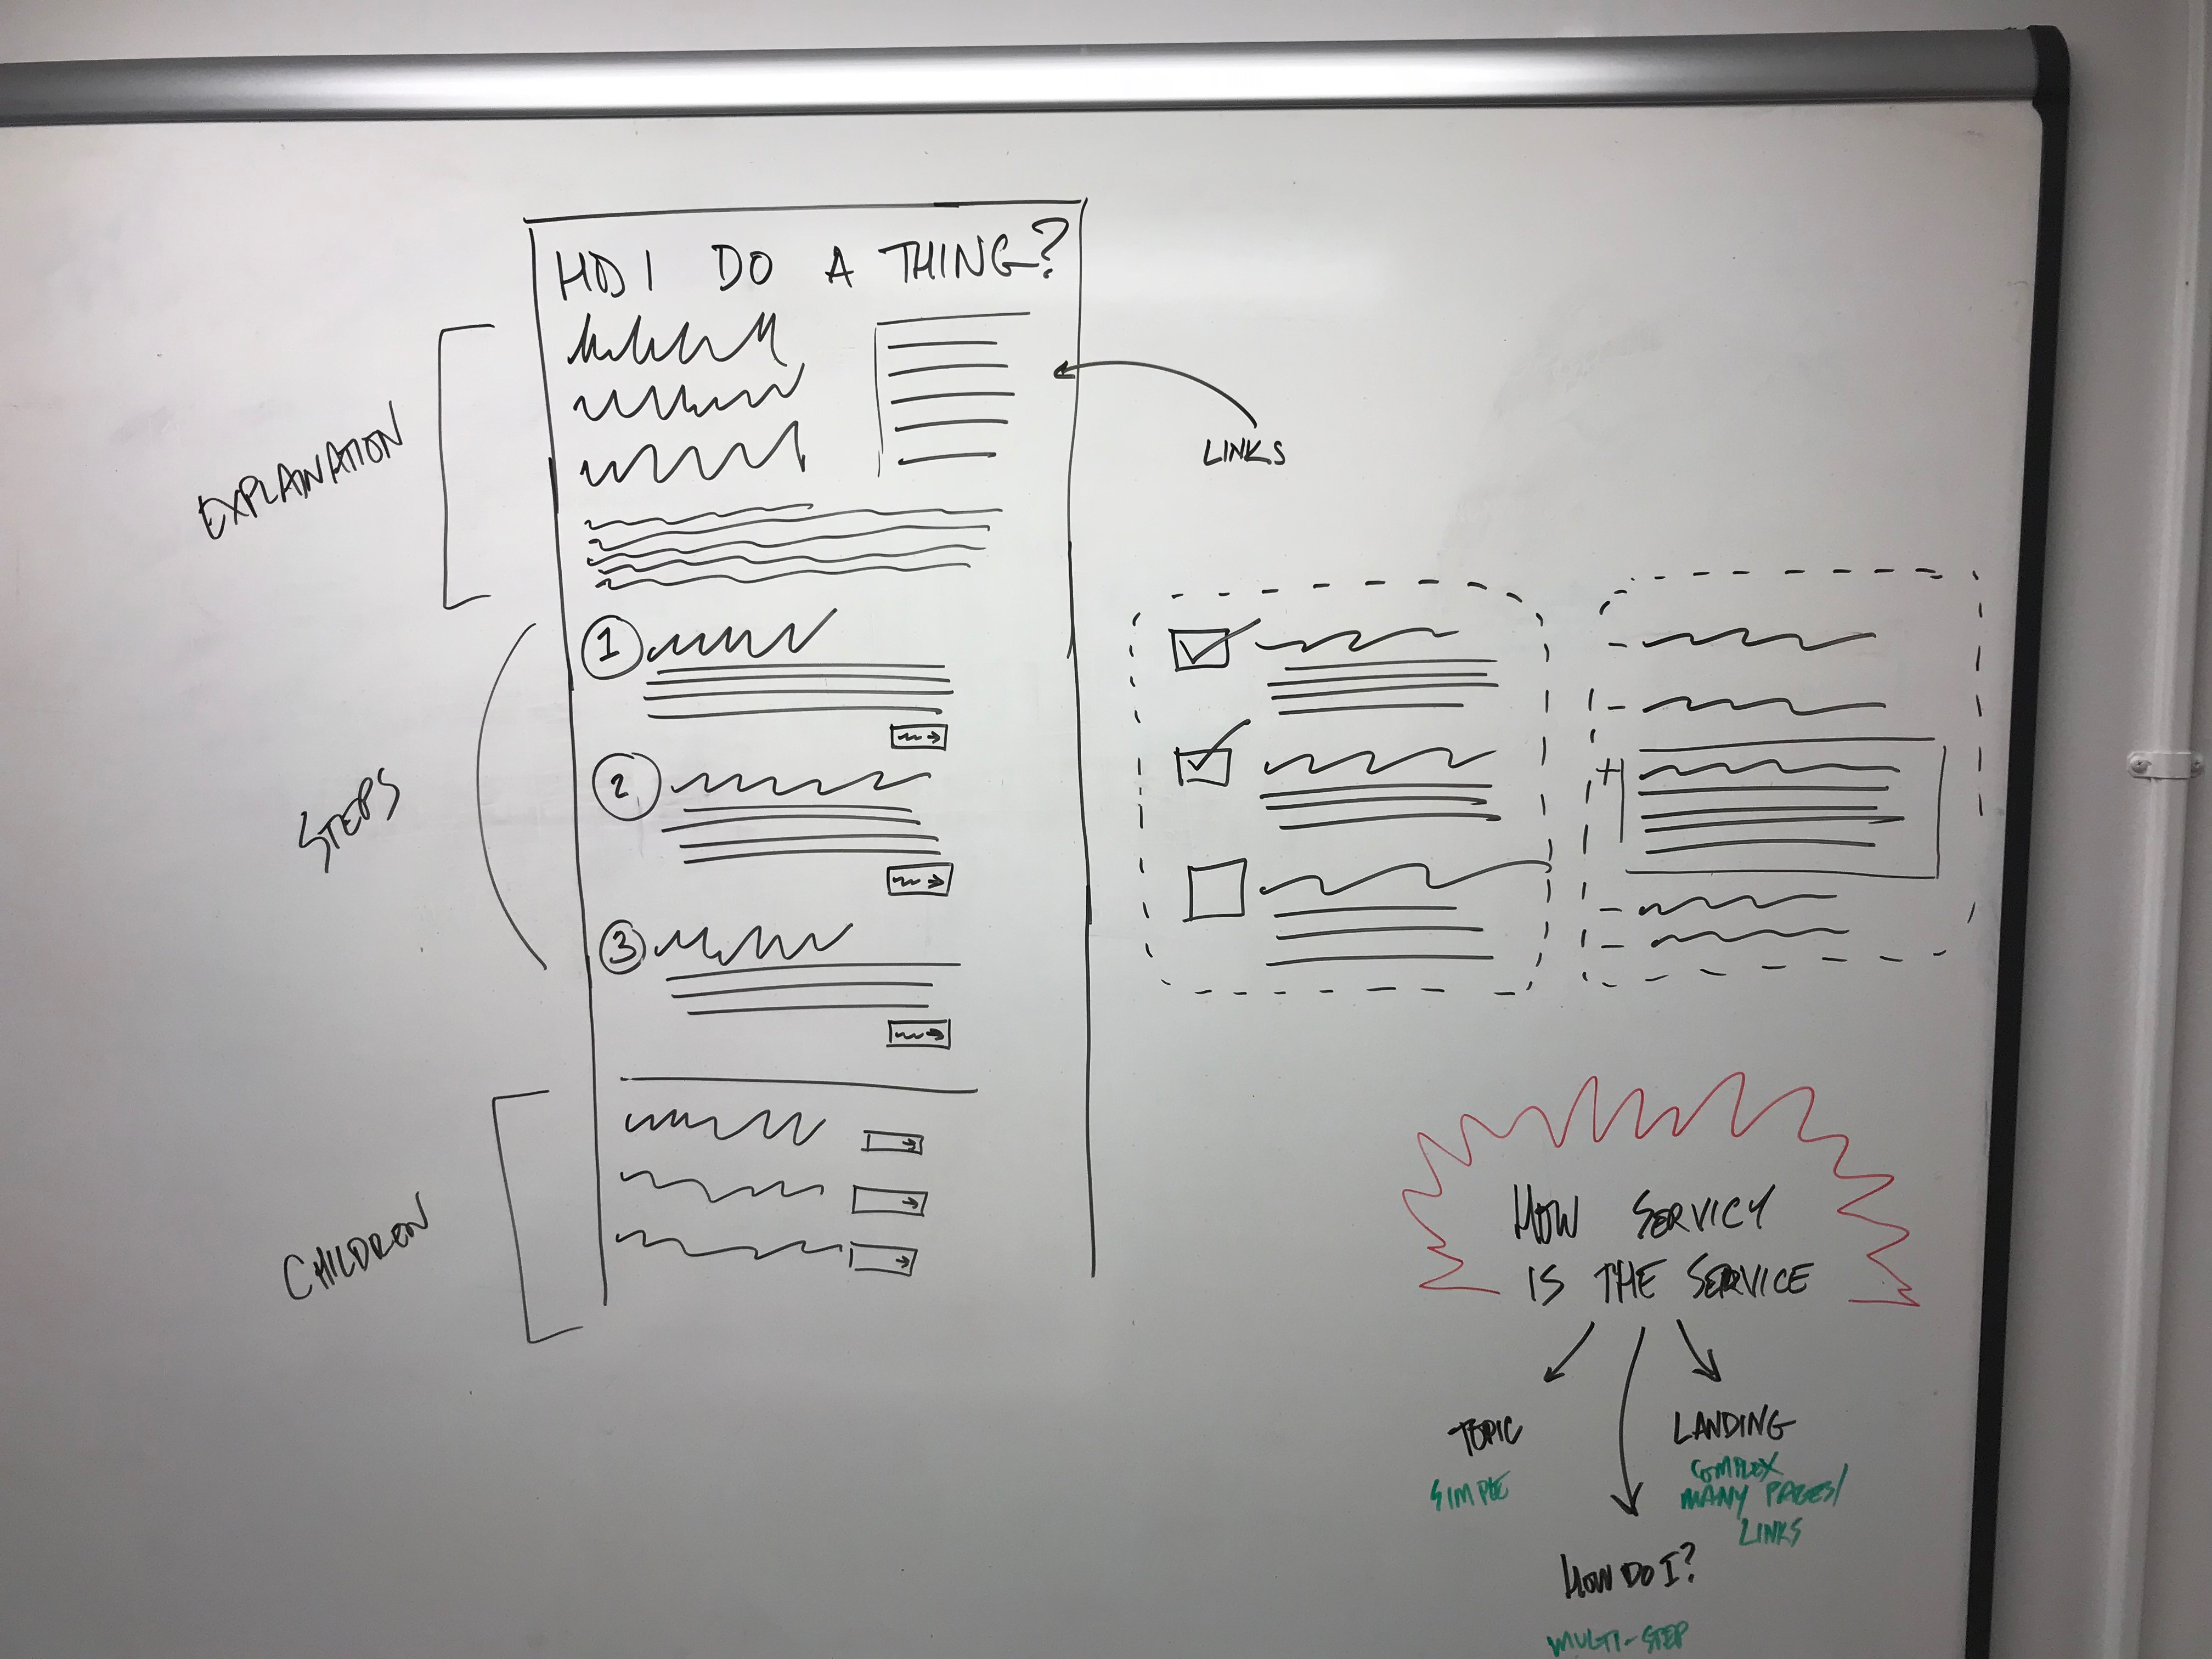 I DO A THING?
EXPLAINATION
LINKS
STEPS
1
2
3
CHILDREN
HOW SERVICY
IS THE SERVICE
TOPIC
SIMPLE
LANDING
COMPLEX
MANY PAGES/
LINKS
HOW DO I?
MULTI-STEP